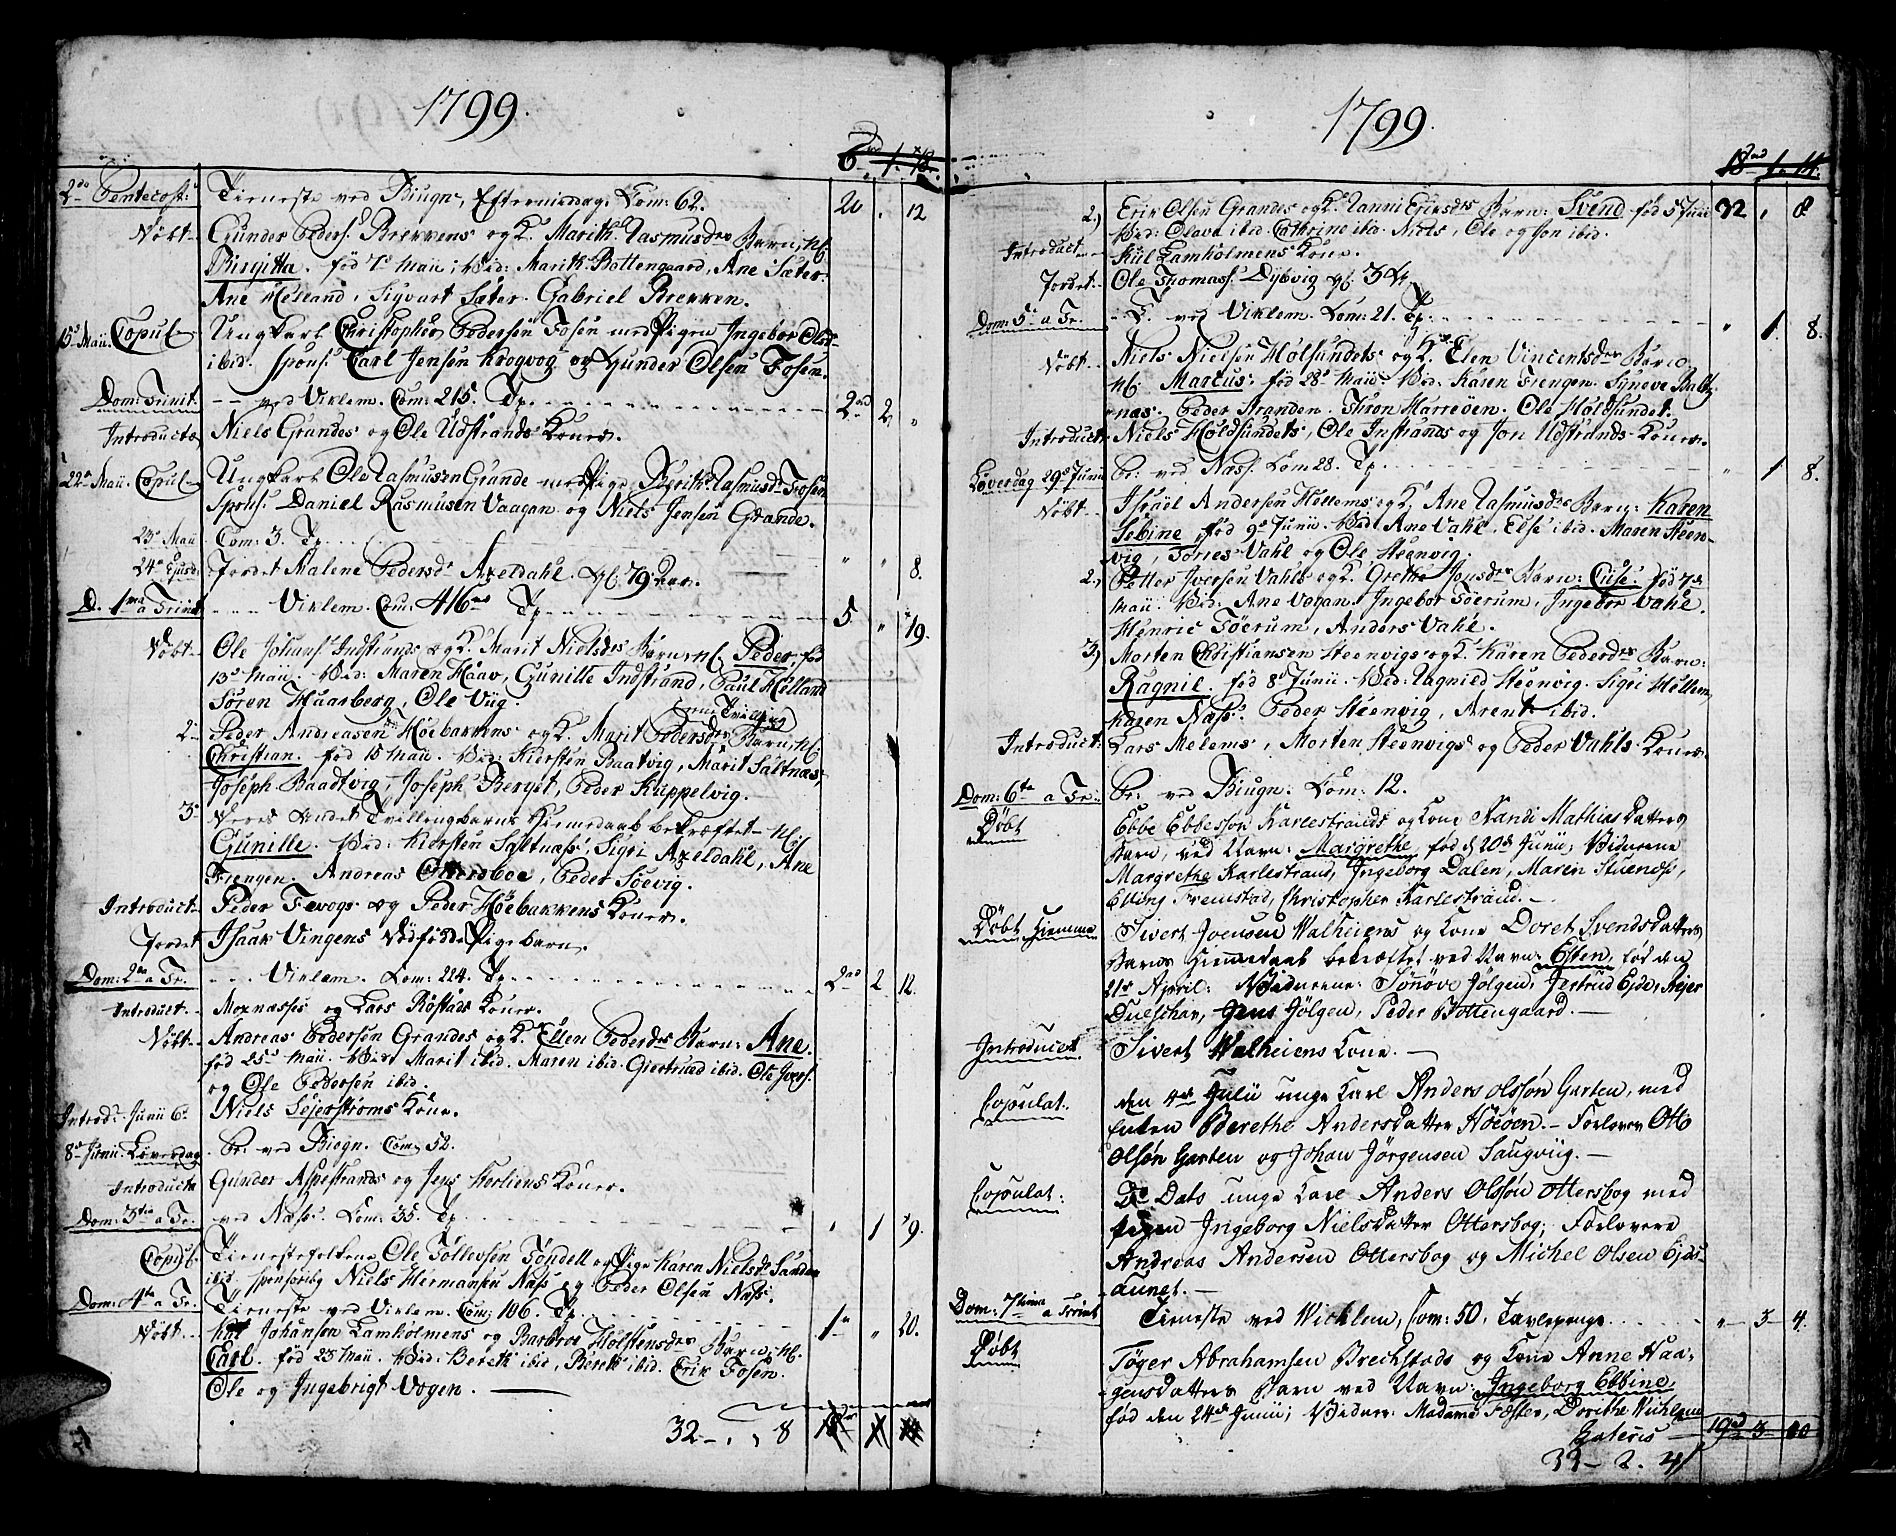 1799.
6 1 13
2den Pentecost: Tieneste ved Biugn, Eftermiddag. Com: 62. 20 . 12
Döbt Gunder Peders. Brekkens og K. Marith Rasmusdrs Barn, N:
Birgitta. fód 7de Maii. Vid: Marith Bottengaard, Ane Sæter.
Ane Helland, Sigvart Sæter. Gabriel Brekken.
Maii. Copul Ungkarl Christopher Pedersen Fosen med Pigen Ingebor Olsd
ibid. Spons. Carl Jensen Krogvog og Gunder Olsen Fosen.
Dom: Trinit. -- ved Viklem. Com: 215. Tp. 2 2 "
Introducta Niels Grandes og Ole Udstrands Koner.
22de Maii. Copul Ungkarl Ole Rasmusen Grande med Pige Byrith Rasmusdr Fosen
Spons. Daniel Rasmusen Vaagan og Niels Jensen Grande.
23de Maii Com: 3. Tp.
24de Ejusd. Jordet Malene Pedersdr Axeldahl. gl. 79 Aar. " " 8.
D. 1ma a Trinit --- Viklem. Com: 416 Tp 5 " 19.
Döbt Ole Johans. Indstrands og K. Marit Nielsdrs Barn N: Peder, fód
13de Maii. Vid: Maren Haav, Gunille Indstrand, Paul Helland
Sören Haarberg, Ole Viig.
2 Peder Andreasen Höebakkens og K. Marit Pedersdrs (Tvilling) Barn, N:
Christian. fód 15 Maii. Vid: Kiersten Baatvig, Marit Saltnæs,
Joseph Baadtvig, Joseph Berget, Peder Kuppelvig.
3 Deres Andet Tvillingbarns Hiemmedaab bekræftet N:
Gunille. Vid: Kiersten Saltnæss, Sigri Axeldahl, Ane
Frengen. Andreas Otterdboe, Peder Söevig.
Introduct Peder Fevogs og Peder Höebakkens Koner.
Jordet Isaak Vingens Dödfödde Pigebarn.
Dom: 2da a Tr. --- Viklem. Com: 224. Tp. 2 2 12.
Introduct. Moxnæsses og Lars Röstads Koner.
Döbt Andreas Pedersen Grandes og K. Ellen Pedersdrs Barn: Ane.
fód 25de Maii. Vid: Marit ibid. Maren ibid. Giertrud ibid. Ole Jvers.
og Ole Pedersen ibid.
Introd. Junii 6. Niels Sejerströms Kone.
8de Junii. Löverdag Pr: ved Biogn. Com: 52.
Introducta Gunder Aspestrands og Jens Herliens Koner.
Dom: 3tia a Tr. ved Næss. Com: 35. Tp. " 1 9.
Copul. Tienestefolkene Ole Tollevsen Tondell og Pige Karen Nielsdr Sanden
ibid. Sponsorib Niels Hermansen Næss og Peder Olsen Næss.
Dom: 4ta a Tr. Tieneste ved Viklem. Com: 106. Tp. 1 " 20.
Döbt Johansen Lamholmens og Barbroe Holstensdrs Barn, N:
Carl. fód 23 Maii. Vid: Berith ibid, Berith ibid. Erik Fosen.
Ole og Ingebrigt Vogen.
32 - . , 8
1799.
18 1. 14.
2.) Erik Olsen Grandes og K. Nanni Eriksdrs Barn: Svend fód 5 Junii 32 , 8
Vid: Olava ibid. Cathrine ibid. Niels, Ole og Jon ibid.
Introduct. Kul Lamholmens Kone.
Jordet Ole Thomass. Dybvig gl. 3 Ar.
Dom: 5ta a Tr. - T. ved Viklem. Com: 21. Tp. " 1 8.
Döbt Niels Nielsen Holsundets og K. Elen Vincentsdrs Barn
N: Marcus. fód 28de Maii. Vid: Karen Frengen. Synove
næs. Peder Aranden. Thron Harreöen. Ole Holdsundet.
Introduct. Niels Holdsundets, Ole Instrands og Jon Udstrands Koner.
Löverdag 29de Junii Pr: ved Næs. Com 28. Tp " 1 8.
Döbt Israël Andersen Hellems og K. Ane Rasmusdrs Barn: Karen
Sebine, fód 9de Junii. Vid: Ane Vahl. Else ibid. Maren Steen-
vig, Torres Vahl og Ole Steenvig.
2.) Petter Jversen Vahls og K. Grethe Jonsdrs Barn: Cuse. fód 7de
Maii. Vid: Ane Vogan. Ingebor Föerum, Ingebor Vahl.
Henric Föerum, Anders Vahl.
3.) Morten Christiansen Steenvigs og K. Karen Pedersdrs Barn:
Ragnil. fód 8de Junii. Vid: Ragnild Steenvig. Sigri Hellem,
Karen Næss. Peder Steenvig, Arent ibid.
Introduct: Lars Melems, Morten Steenvigs og Peder Vahls Koner.
Dom: 6ta a Tr: Pr: ved Biugn. Com: 12.
Döbt Ebbe Ebbesön Karlestrands og Kone Nandi Mathias Datters
Barn, ved Navn: Margrethe, fód d 20de Junii; Vidnerne
Margrethe Karlestrand, Ingeborg Dalen, Maren
Elling Fremstad, Christopher Karlestrand.
Döbt Hiemme Sivert Joensen Walheiens og Kone Doret Svends Datters
Barns Hiemmedaab bekræftet ved Navn: Esten, fód den
21de April: Vidnerne: Sönöve Jölgen, Jertrud Ejde, Rejer
Duelshav, Jens Jölgen, Peder Bottengaard.
Introducet Sivert Walheiens Kone.
Copulat. den 4de Julii unge Karl Anders Olssön Garten, med
Enken Berethe Andersdatter Höeöen. Forlover Otto
Olsön Garten og Johan Jörgensen Saugviig.
Copulat: Do Dato unge Karl Anders Olssön Ottersbog med
Pigen Ingeborg Nielsdatter Ottersbog; Forlovere
Andreas Andersen Ottersbog og Michel Olsen Ejds-
aunet.
Dom: 7tima a Trinit Tieneste ved Wichlem, Com: 50, Tavlepenge " 3 4.
Döbt Töger Abrahamsen Brechstads og Kone Anne Haa-
gensdatters Barn ved Navn: Ingeborg Ebbine,
fód den 24de Junii; Vidner: Madame Foster, Dorithe Wichlem
Lateris 19 3 10
33 - 2. 4